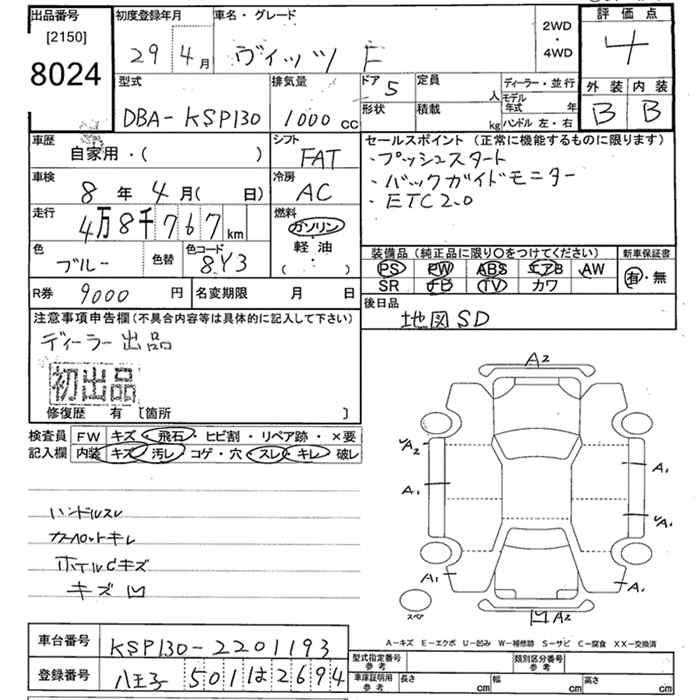 出品番号
[2150]
8024
初度登録年月
29年4月
車名・グレード
ヴィッツ F
2WD
・
4WD
評価点
4
外装 内装
B B
型式
DBA-KSP130
排気量
1000cc
ドア 5
形状
定員 人
積載 kg
ディーラー・並行
モデル年式 年
ハンドル 左・右
車歴
自家用・( )
シフト
FAT
車検
8年4月( 日)
冷房
AC
走行
4万8千767km
燃料
ガソリン
・
軽油
・
( )
色
ブルー
色替
色コード
8Y3
R券 9000円
名変期限 月 日
セールスポイント (正常に機能するものに限ります)
・プッシュスタート
・バックガイドモニター
・ETC2.0
装備品 (純正品に限り○をつけてください)
PS PW ABS エアB AW
SR ナビ TV カワ
新車保証書
有・無
後日品
地図SD
注意事項申告欄 (不具合内容等は具体的に記入して下さい)
ディーラー出品
初出品
修復歴 有 [箇所 ]
検査員
記入欄
FW キズ・飛石・ヒビ割・リペア跡・×要
内装 キズ・汚レ・コゲ・穴・スレ・キレ・破レ
ハンドルスレ
カーペットキレ
ホイルCキズ
キズ凹
A2
A2
A1
A1
A1
A1
A1
凹A2
スペア
A-キズ E-エクボ U-凹み W-補修跡 S-サビ C-腐食 XX-交換済
車台番号
KSP130-2201193
登録番号
八王子 501 は 2694
型式指定番号
参考
類別区分番号
参考
車庫証明用
参考
長さ cm
幅 cm
高さ cm